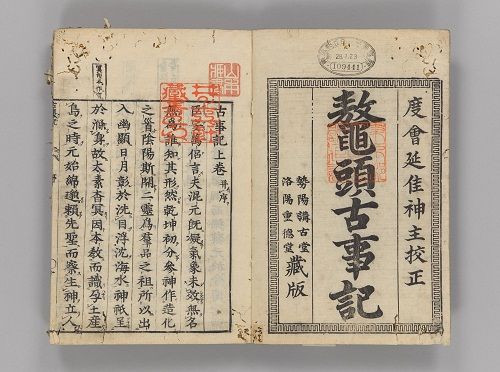 度會延佳神主校正
鼇頭古事記
勢陽講古堂
洛陽重德堂藏版
28.1.23
古事記上卷 并序
臣安萬侶言夫混元既凝氣象未效無名
無爲誰知其形然乾坤初分參神作造化
之首陰陽斯開二靈爲群品之祖所以出
入幽顯日月彰於洗目浮沈海水神祇呈
於滌身故太素杳冥因本敎而識孕土產
嶋之時元始綿邈賴先聖而察生神立人